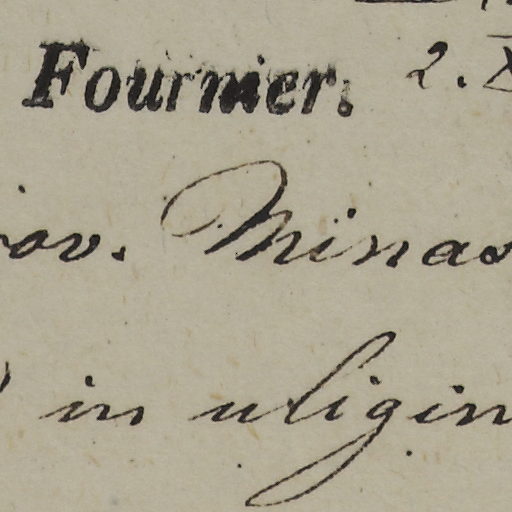 Fournier. 2. X
rov. Minas
in uligin